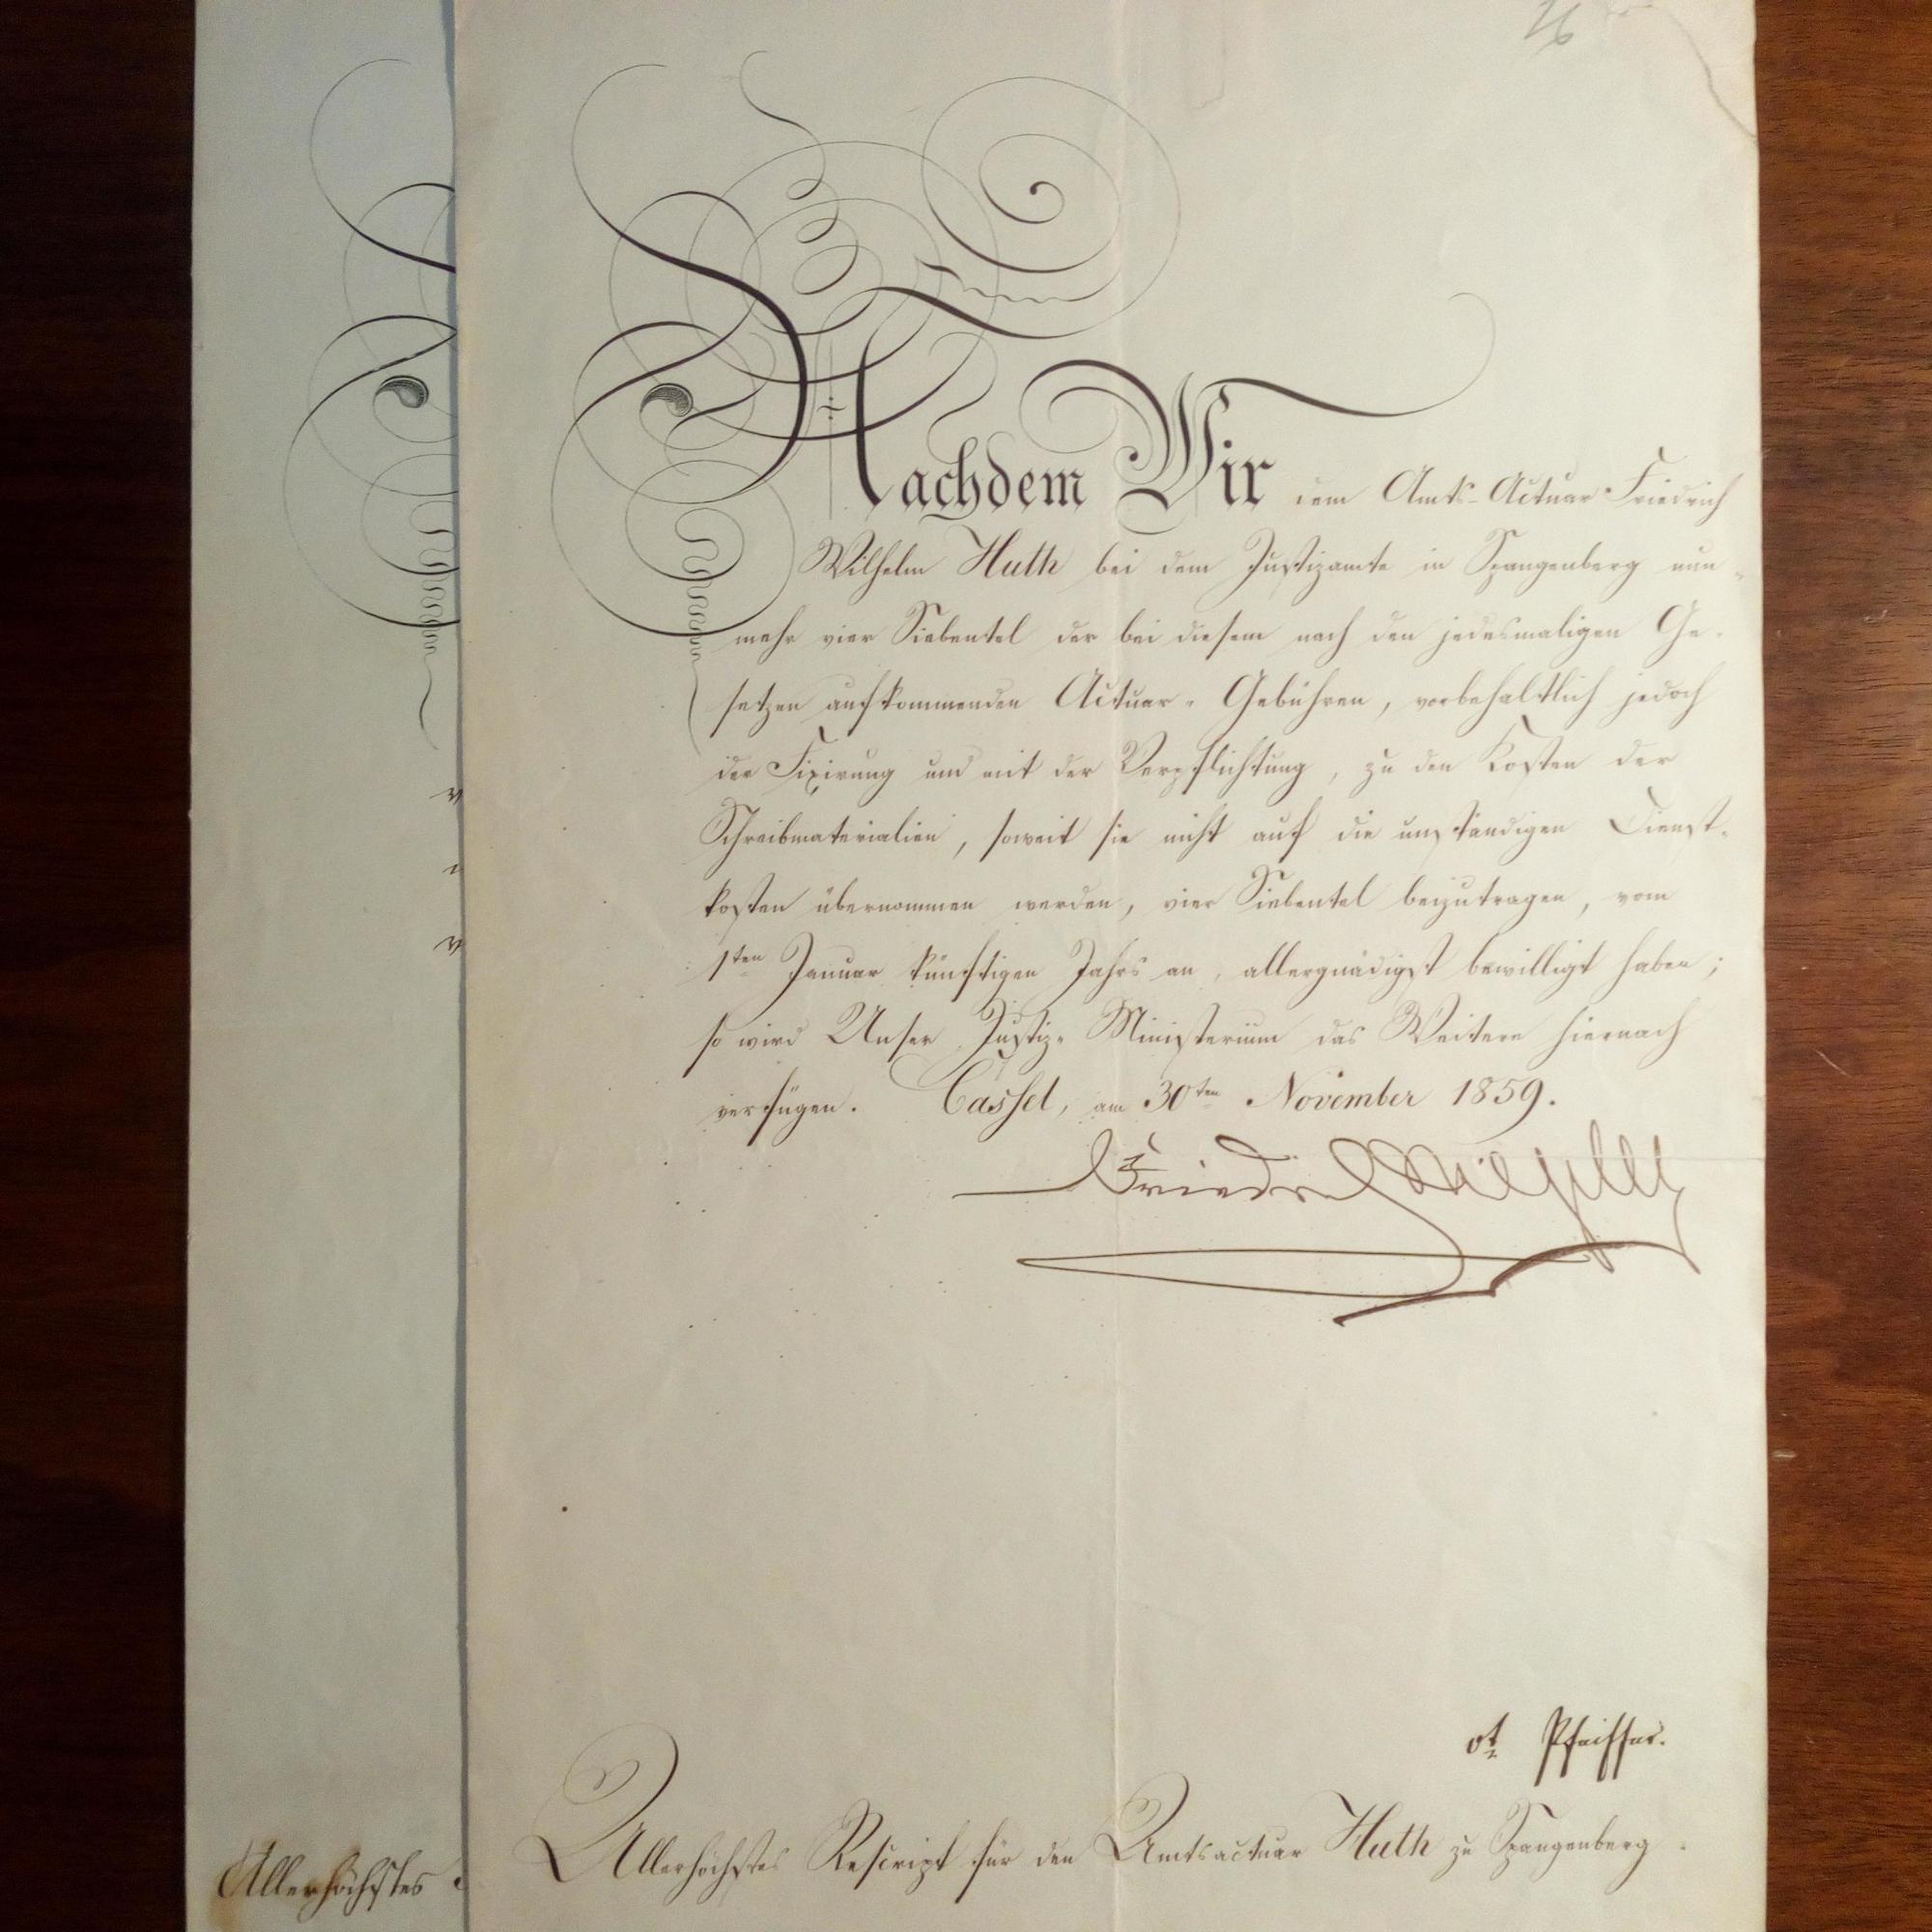 26
Nachdem Wir dem Amts-Actuar Friedrich
Wilhelm Huth bei dem Justizamte in Spangenberg nun-
mehr vier Siebentel der bei diesem nach den jedesmaligen Ge-
setzen aufkommenden Actuar-Gebühren, vorbehaltlich jedoch
der Fixirung und mit der Verpflichtung, zu den Kosten der
Schreibmaterialien, soweit sie nicht auf die unständigen Dienst-
kosten übernommen werden, vier Siebentel beizutragen, vom
1ten Januar künftigen Jahrs an, allergnädigst bewilligt haben;
so wird Unser Justiz-Ministerium das Weitere hiernach
verfügen. Cassel, am 30ten November 1859.
Friedr Wilhelm
vt Pfeiffer.
Allerhöchstes Rescript für den Amtsactuar Huth zu Spangenberg.
Allerhöchstes